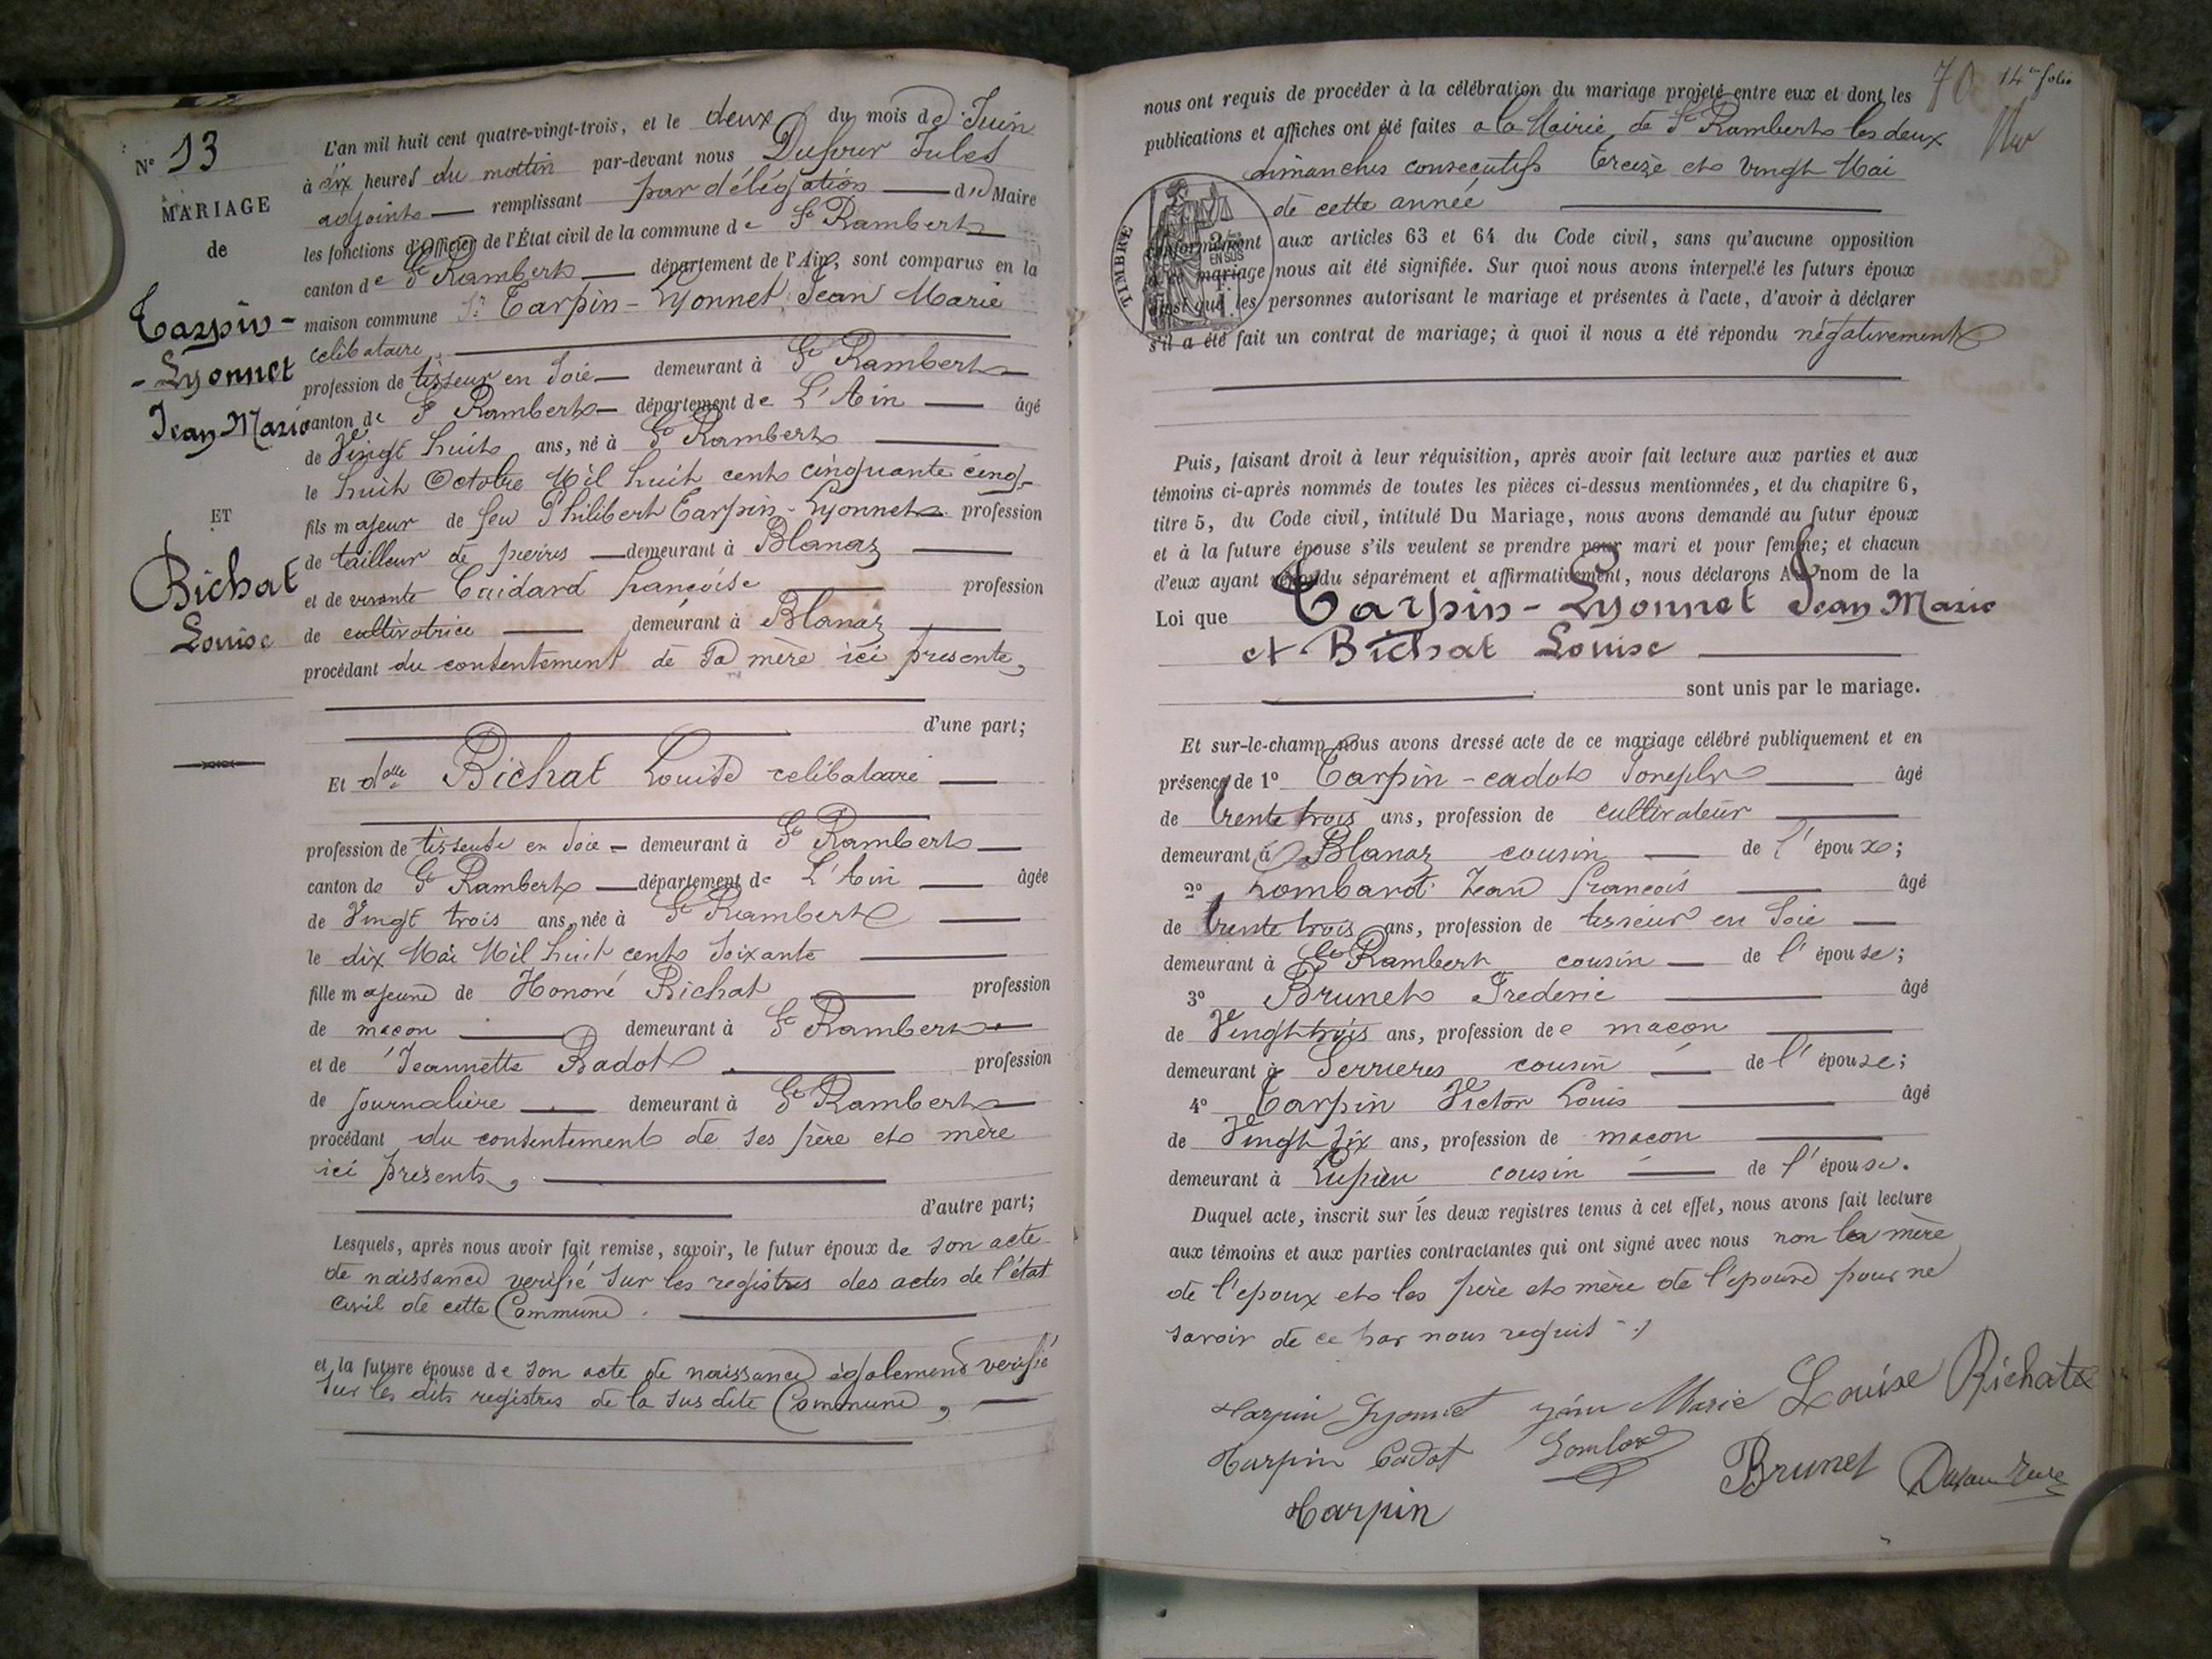 N° 13
MARIAGE
de
Tarpin-
-Lyonnet
Jean Marie
ET
Bichat
Louise
L'an mil huit cent quatre-vingt-trois, et le deux du mois de Juin
à dix heures du mattin par-devant nous Dufour Jules
adjoint remplissant par délégation du Maire
les fonctions d'Officier de l'État civil de la commune de St Rambert
canton de St Rambert département de l'Ain, sont comparus en la
maison commune Sr Tarpin-Lyonnet, Jean Marie
celibataire,
profession de tisseur en Soie demeurant à St Rambert
canton de St Rambert département de L'Ain âgé
de Vingt huit ans, né à St Rambert
le huit Octobre Mil huit cent cinquante cinq
fils majeur de feu Philibert Tarpin-Lyonnet profession
de tailleur de pierres demeurant à Blanaz
et de vivante Caidard françoise profession
de cultivatrice demeurant à Blanaz
procédant du consentement de sa mère ici presente,
d'une part;
Et dlle Bichat Louise celibataire
profession de tisseuse en Soie demeurant à St Rambert
canton de St Rambert département de L'Ain âgée
de Vingt trois ans, née à St Rambert
le dix Mai Mil huit cent Soixante
fille majeure de Honoré Bichat profession
de macon demeurant à St Rambert
et de Jeannette Radot profession
de journalière demeurant à St Rambert
procédant du consentement de ses père et mère
ici presents,
d'autre part;
Lesquels, après nous avoir fait remise, savoir, le futur époux de son acte
de naissance verifié sur les registres des actes de l'état
civil de cette Commune.
et la future épouse de son acte de naissance également verifié
sur les dits registres de la susdite Commune,
70 14me folio
nous ont requis de procéder à la célébration du mariage projeté entre eux et dont les
publications et affiches ont été faites a la Mairie de St Rambert les deux
dimanches consecutifs treize et vingt Mai
de cette année
TIMBRE
2/10 EN SUS
conformément aux articles 63 et 64 du Code civil, sans qu'aucune opposition
à ce mariage nous ait été signifiée. Sur quoi nous avons interpellé les futurs époux
ainsi que les personnes autorisant le mariage et présentes à l'acte, d'avoir à déclarer
s'il a été fait un contrat de mariage; à quoi il nous a été répondu négativement
Puis, faisant droit à leur réquisition, après avoir fait lecture aux parties et aux
témoins ci-après nommés de toutes les pièces ci-dessus mentionnées, et du chapitre 6,
titre 5, du Code civil, intitulé Du Mariage, nous avons demandé au futur époux
et à la future épouse s'ils veulent se prendre pour mari et pour femme; et chacun
d'eux ayant répondu séparément et affirmativement, nous déclarons Au nom de la
Loi que Tarpin-Lyonnet Jean Marie
et Bichat Louise
sont unis par le mariage.
Et sur-le-champ nous avons dressé acte de ce mariage célébré publiquement et en
présence de 1° Tarpin-cadot Joseph âgé
de trente trois ans, profession de cultivateur
demeurant à Blanaz cousin de l'époux;
2° Lombard Jean françois âgé
de trente trois ans, profession de tisseur en Soie
demeurant à St Rambert cousin de l'épouse;
3° Brunet Frederic âgé
de Vingt trois ans, profession de macon
demeurant à Serrieres cousin de l'épouse;
4° Tarpin Victor Louis âgé
de Vingt six ans, profession de macon
demeurant à Lupieu cousin de l'épouse.
Duquel acte, inscrit sur les deux registres tenus à cet effet, nous avons fait lecture
aux témoins et aux parties contractantes qui ont signé avec nous non la mère
de l'epoux et les père et mère de l'epouse pour ne
savoir de ce par nous requis
Tarpin Lyonnet Jean Marie Louise Richate
Tarpin Cadot Lombard Brunet
Tarpin